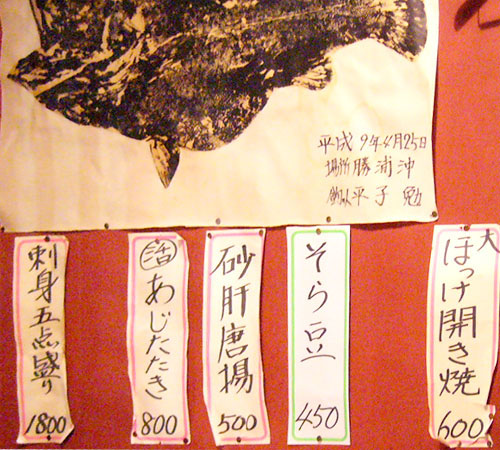 平成9年4月25日
場所勝浦沖
平子 勉
大
ほっけ開き焼
600
そら豆
450
砂肝唐揚
500
活
あじたたき
800
刺身五点盛り
1800